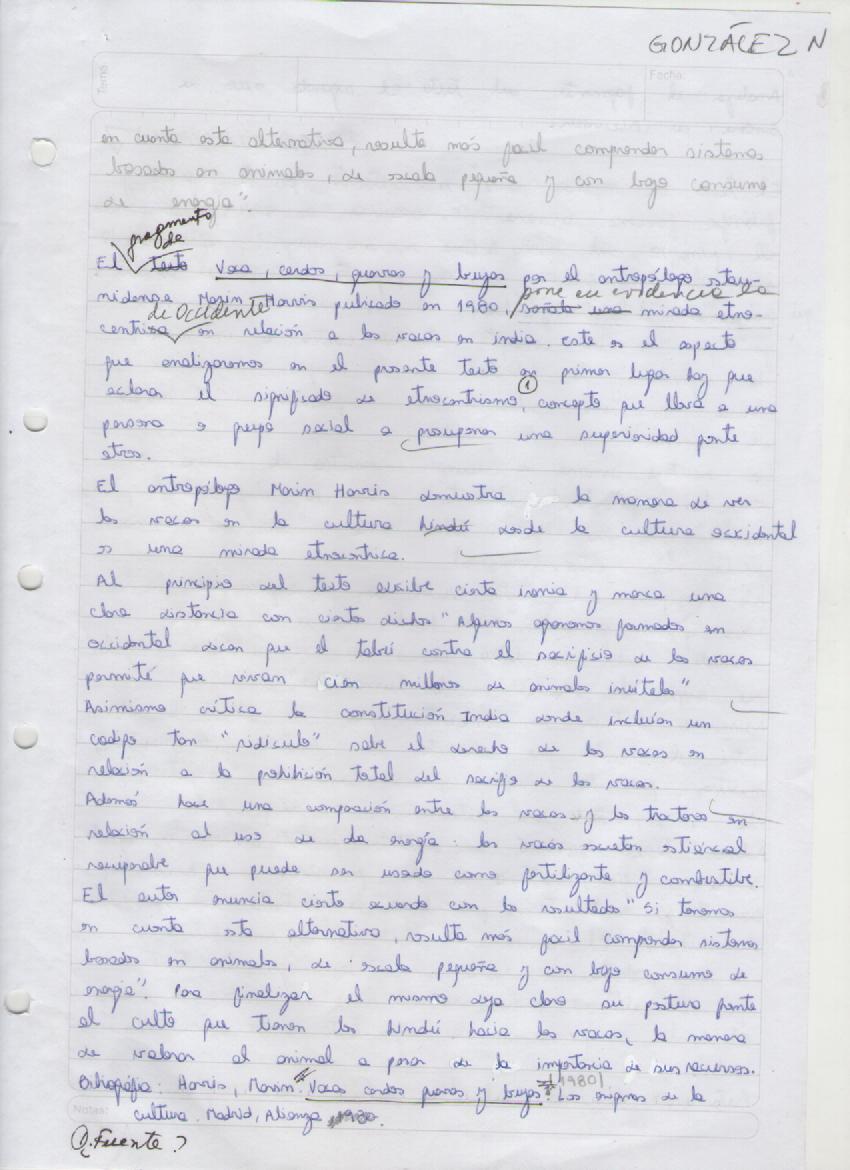 GONZÁLEZ N
Tema
Fecha:
en cuenta esta alternativa, resulta más facil comprender sistemas
basados en animales, de escala pequeña y con bajo consumo
de energia".
fragmento
de
El texto Vaca, cerdos, guerras y brujas por el antropólogo estau-
pone en evidencia la
nidense Marin Harris publicado en 1980, mirada etno-
de Occidente
centrica en relación a las vacas en india. Este es el aspecto
que analizaremos en el presente texto en primer lugar hay que
1
aclarar el significado de etnocentrismo, concepto que lleva a una
persona o grupo social a presuponer una superioridad frente
otros.
El antropólogo Marin Harris demustra la manera de ver
las vacas en la cultura hindú desde la cultura occidental
es una mirada etnocentrica.
Al principio del texto excribe cierta ironia y marca una
clara distancia con ciertos dichos "Algunos agronomos formados en
occidental dicen que el tabú contra el sacrificio de las vacas
permité que vivan cien millones de animales inuteles"
Asimismo crítica la constitución India donde incluían un
codigo tan "ridiculo" sobre el derecho de las vacas en
relación a la prohibición total del sacrifio de las vacas.
Ademas hace una compración entre las vacas y los tratores en
relación al uso de la energía. las vacas excretan estiércal
recuperabe que puede ser usado como fertilizante y combustibe.
El autor enuncia cierto acuerdo con los resultados "Si tenemos
en cuenta esta alternativa, resulta más facil comprender sistemas
basados en animales, de escala pequeña y con bajo consumo de
energia". Para finalizar el mismo deja claro su postura frente
al culto que tienen los hindú hacia las vacas, la manera
de valorar al animal a pesar de la importancia de sus recursos.
Bibliografía: Harris, Marin. Vacas cerdos guerras y brujas. 1980 Los enigmas de la
Notas:
cultura. Madrid, Alianza 1980.
1. Fuente?